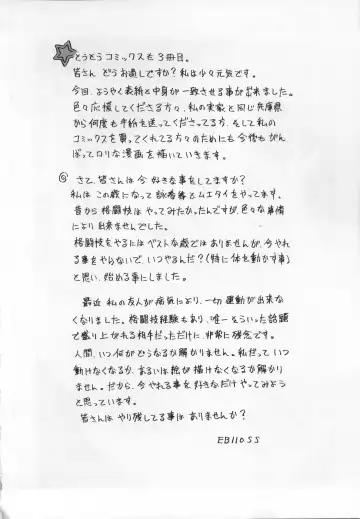 とうとうコミックスも3冊目。
皆さん どうお過しですか?私は少々元気です。
今回、ようやく表紙と中身が一致させる事が出来ました。
色々応援してくださる方々、私の実家と同じ兵庫県
から何度も手紙を送ってくださってる方、そして私の
コミックスを買ってくれてる方々のためにも今後もがん
ばってロリな漫画を描いていきます。
さて、皆さんは今好きな事をしてますか?
私は この歳になって詠春拳とムエタイをやってます。
昔から格闘技は やってみたかったんですが、色々な事情
により出来ませんでした。
格闘技をやるには ベストな歳では ありませんが、今やれ
る事をやらないで、いつやるんだ?(特に体を動かす事)
と思い、始める事にしました。
最近 私の友人が病気により、一切運動が出来な
くなりました。格闘技経験もあり、唯一そういった話題
で盛り上がれる相手だっただけに、非常に残念です。
人間、いつ何がどうなるか解かりません。私だって いつ
動けなくなるか、あるいは絵が描けなくなるか解かり
ません。だから、今やれる事を好きなだけ やってみよう
と思っています。
皆さんは やり残してる事は ありませんか?
EB110SS